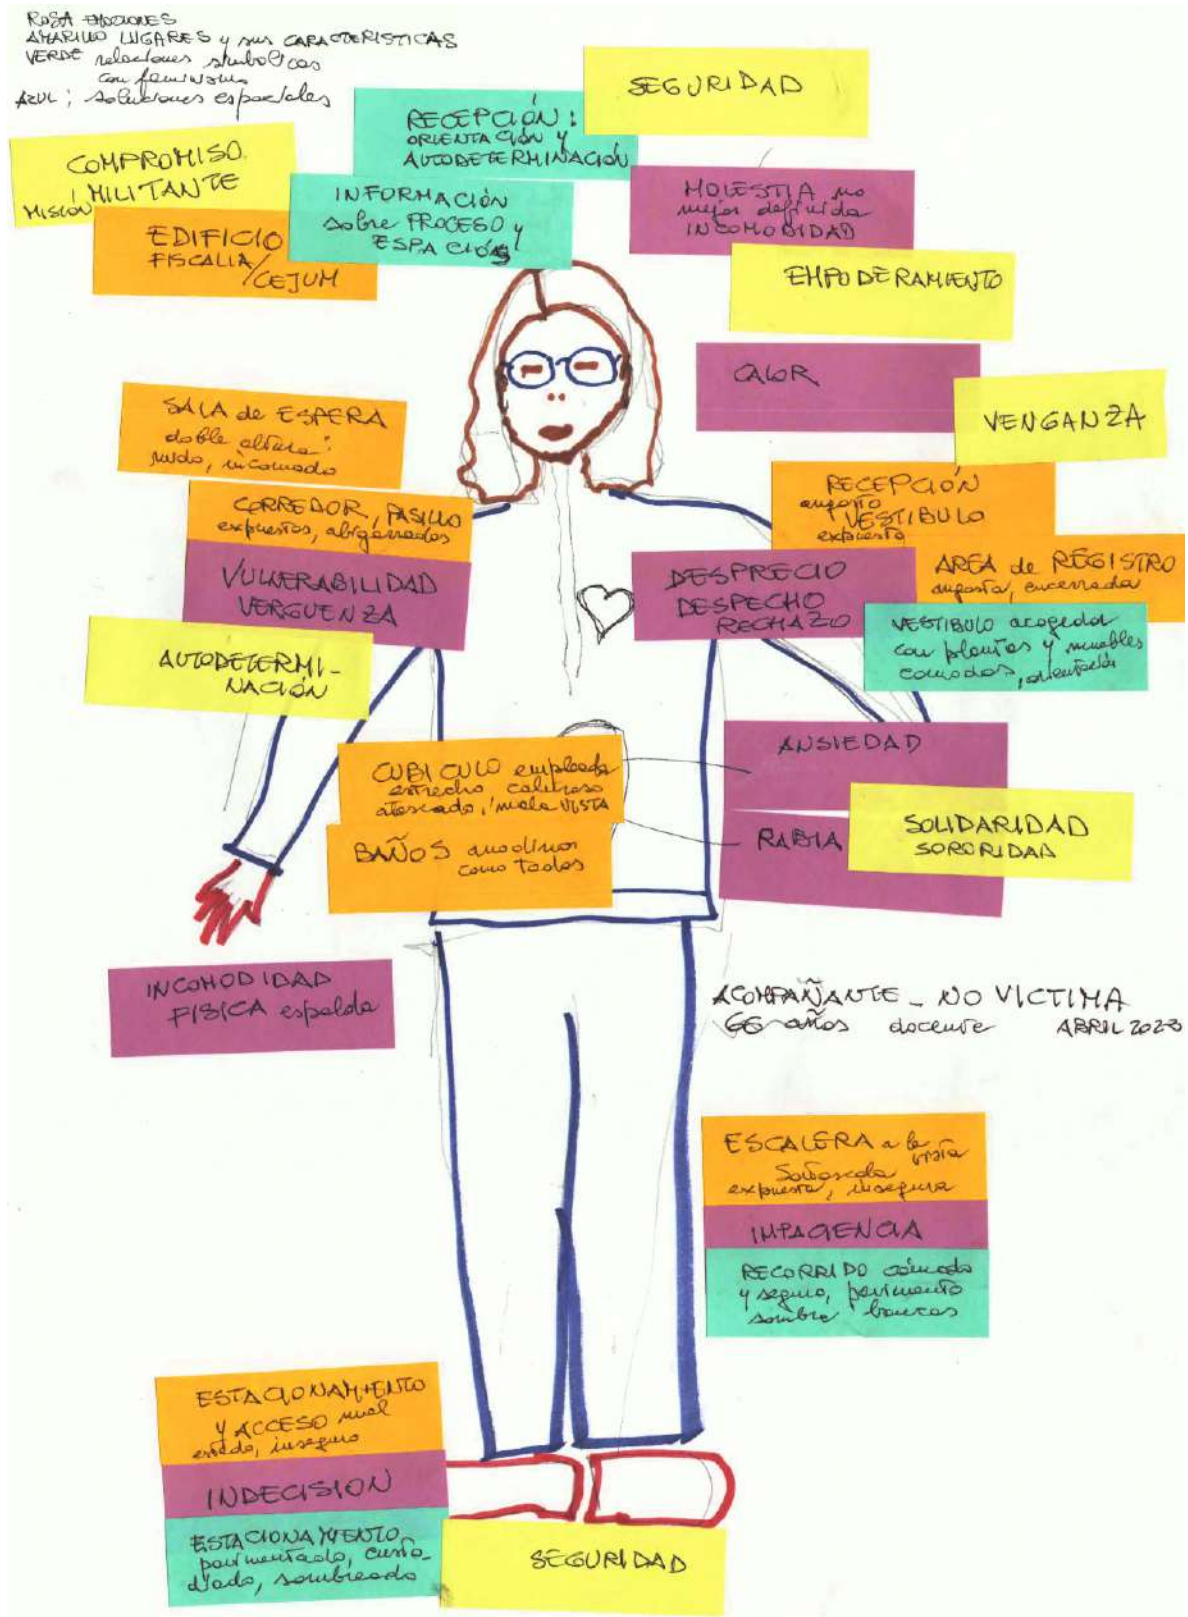 ROSA EMOCIONES
AMARILLO LUGARES y sus CARACTERISTICAS
VERDE relaciones simbolicas
con feminismo
AZUL; soluciones espaciales
SEGURIDAD
RECEPCIÓN:
ORIENTACIÓN y
AUTODETERMINACIÓN
COMPROMISO
MILITANTE
MISIÓN
INFORMACIÓN
sobre PROCESO y
ESPACIOS
MOLESTIA no
mejor definida
INCOMODIDAD
EDIFICIO
FISCALIA/
CEJUM
EMPODERAMIENTO
CALOR
SALA de ESPERA
doble altura:
ruido, incomodo
VENGANZA
RECEPCIÓN
angosto
VESTIBULO
expuesto
CORREDOR, PASILLO
expuestos, abigarrados
VULNERABILIDAD
VERGUENZA
DESPRECIO
DESPECHO
RECHAZO
AREA de REGISTRO
angosta, encerrada
VESTIBULO acogedor
con plantas y muebles
comodos, orientación
AUTODETERMI-
NACIÓN
ANSIEDAD
CUBICULO empleada
estrecho caluroso
atascado, mala VISTA
RABIA
SOLIDARIDAD
SORORIDAD
BAÑOS anodinos
como todos
INCOMODIDAD
FISICA espalda
ACOMPAÑANTE - NO VICTIMA
66 años docente ABRIL 2023
ESCALERA a la
vista
expuesta, insegura
IMPACIENCIA
RECORRIDO cómodo
y seguro, pavimento
sombra bancas
ESTACIONAMIENTO
y ACCESO mal
estado, inseguro
INDECISION
ESTACIONAMIENTO
pavimentado, custo-
diado, sombreado
SEGURIDAD